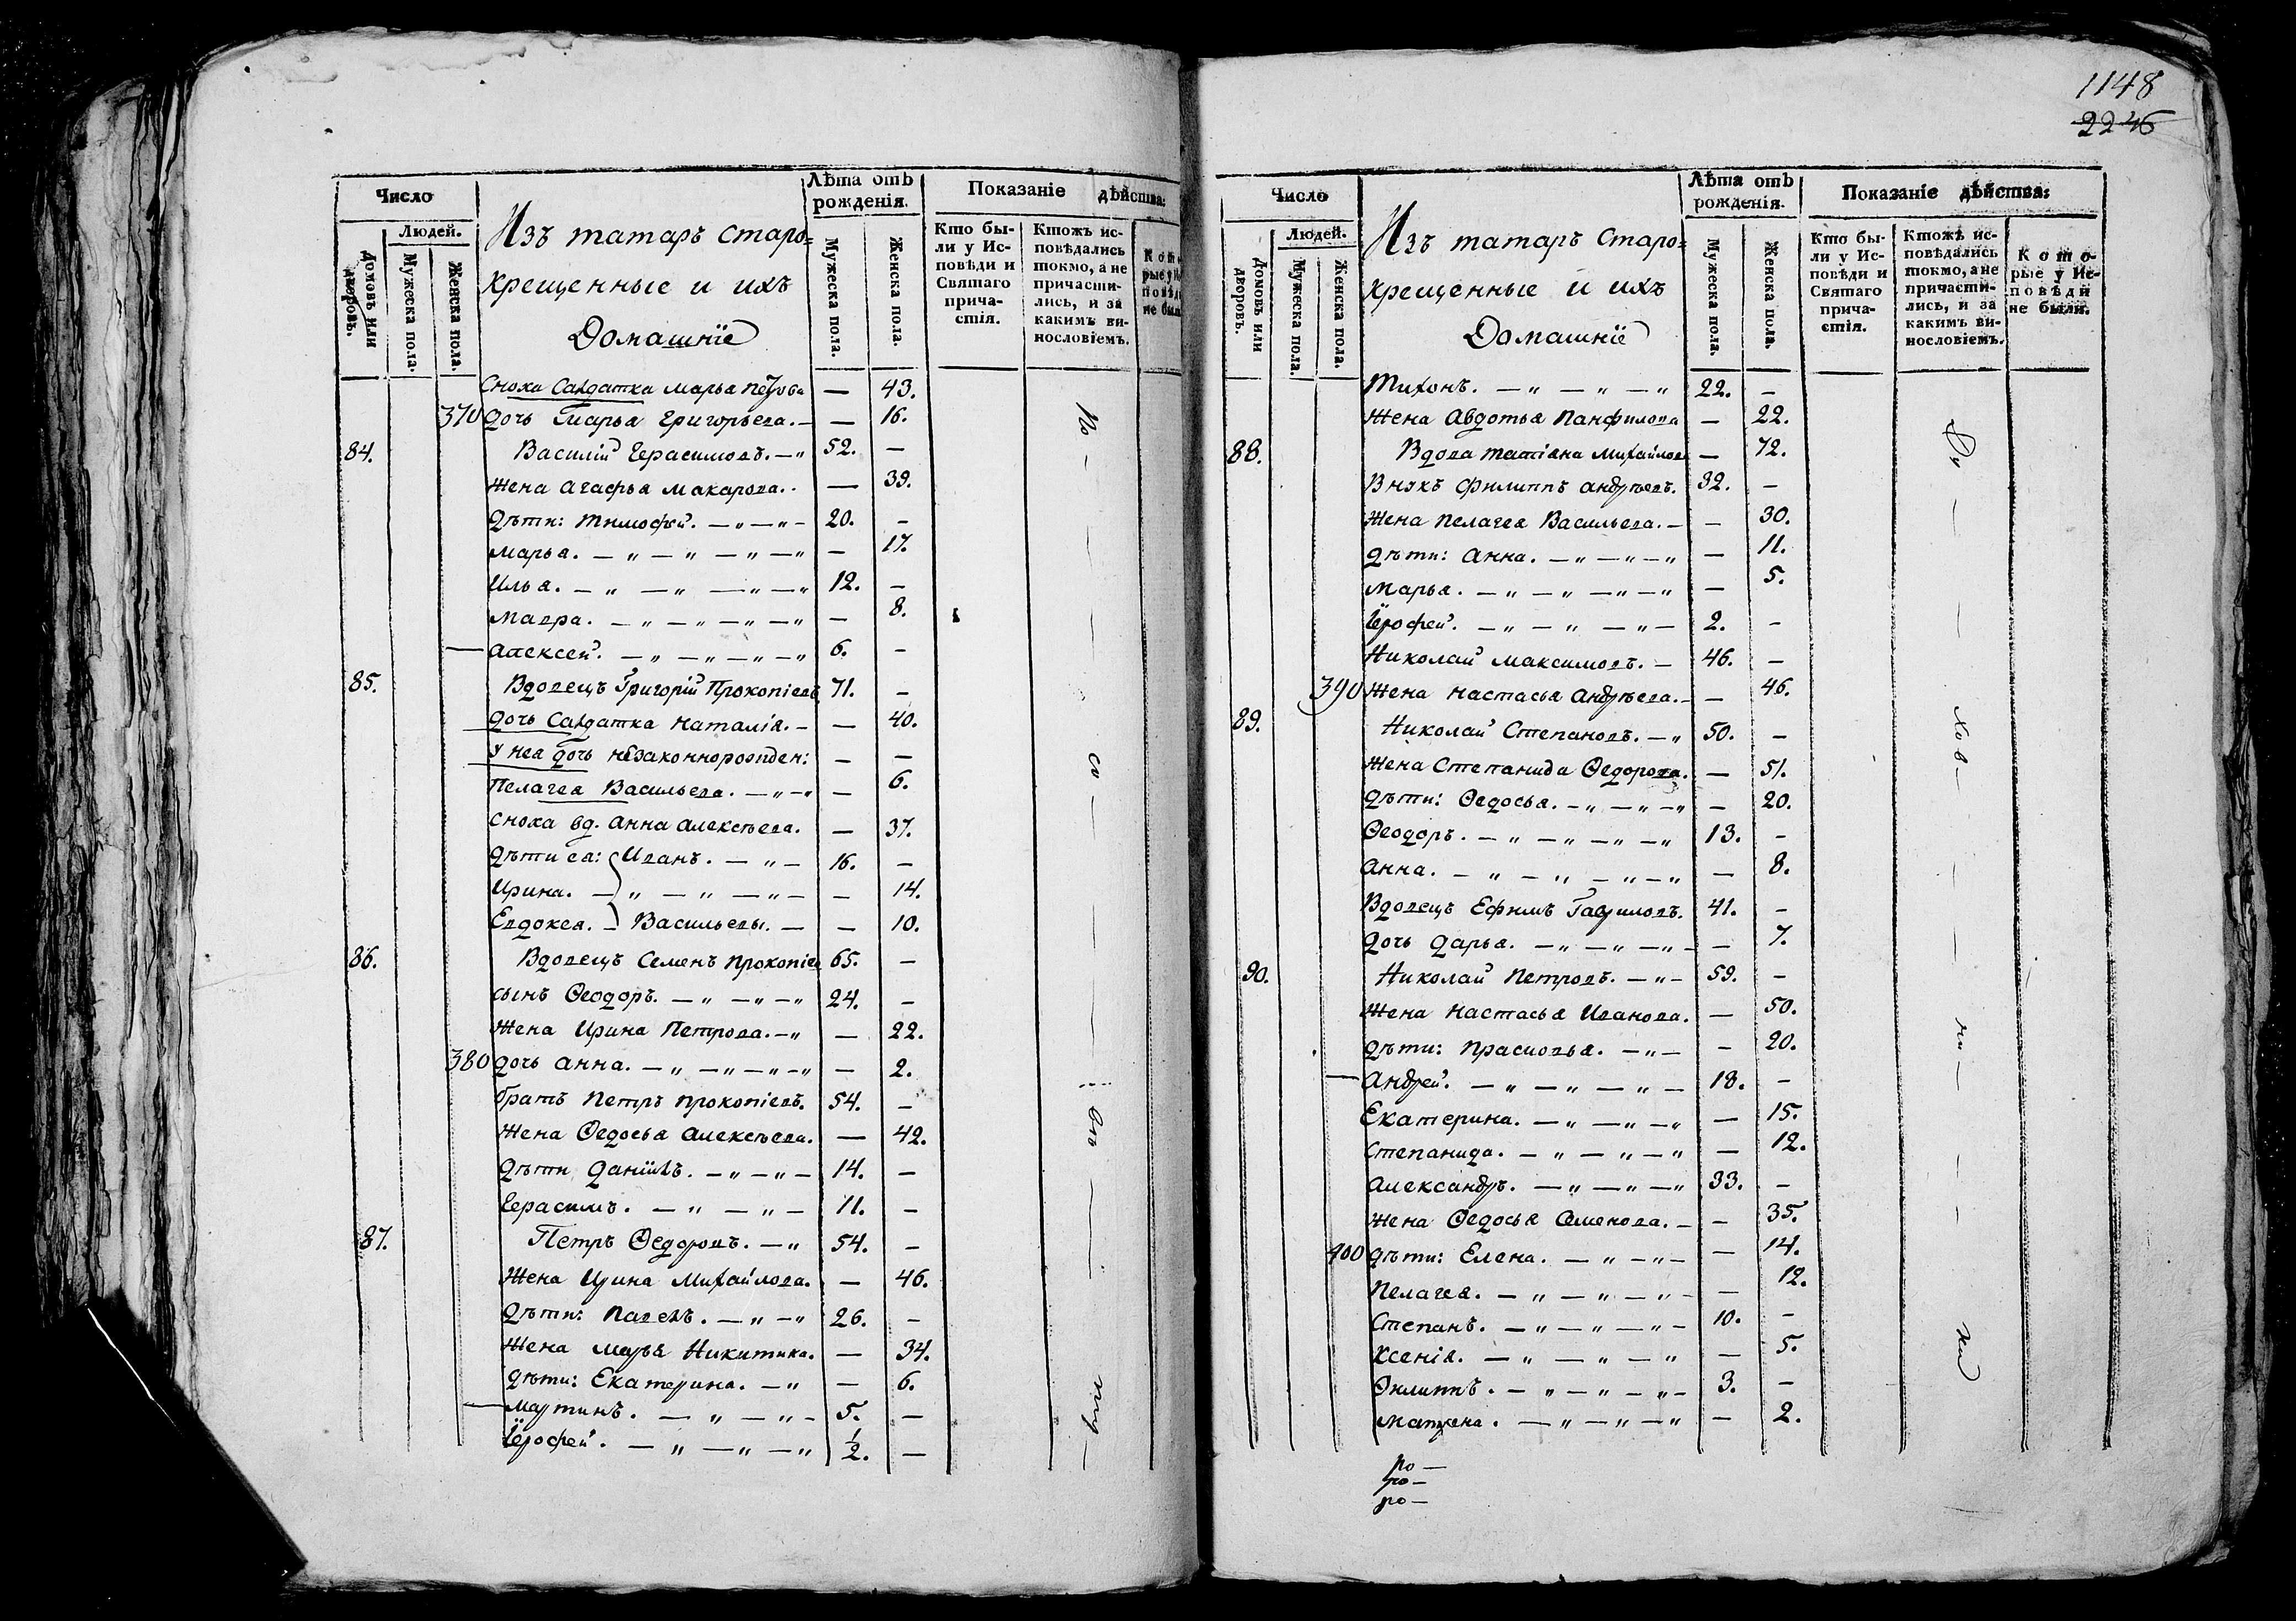 Число
Людей.
Домовъ или дворовъ.
Мужеска пола.
Женска пола.
Изъ татаръ старо=
крещенные и ихъ
Домашніе
Лѣта отъ рожденія.
Мужеска пола.
Женска пола.
Показаніе дѣйства:
Кто бы-
ли у Ис-
повѣди и
Святаго
прича-
стія.
Ктожъ ис-
повѣдались
токмо, а не
причасти-
лись, и за
какимъ ви-
нословіемъ.
Сноха Салдатка Марья Петрова — 43.
370 Дочь Марья Григорьева. — — 16.
84. Василій Герасимовъ. — „ 52. —
Жена Агафья Макарова. — 39.
Дѣти: Тимофей. — „ — „ — 20. —
Марья. — „ — „ — „ — „ — 17.
Илья. — „ — „ — „ — „ 12. —
Мавра. — „ — „ — „ — „ — 8.
— Алексей. — „ — „ — „ — „ 6. —
85. Вдовецъ Григорій Прокопіевъ 71. —
Дочь Салдатка Наталія. — — 40.
У нея дочь незаконнорожден: — —
Пелагея Васильева. — „ — „ — 6.
Сноха вд. Анна Алексѣева. — 37.
Дѣти ея: Иванъ. — „ — 16. —
Ирина. — „ — „ — „ — — 14.
Евдокея. — Васильевы. — — 10.
86. Вдовецъ Семенъ Прокопіев 65. —
сынъ Ѳеодоръ. — „ — „ — „ 24. —
Жена Ирина Петрова. — „ — 22.
380 Дочь Анна. — „ — „ — „ — „ — 2.
братъ Петръ Прокопіевъ. 54. —
Жена Ѳедосья Алексѣева. — 42.
Дѣти Даніилъ. — „ — „ — 14. —
Герасимъ. — „ — „ — 11. —
87. Петръ Ѳедоровъ. — „ 54. —
Жена Ирина Михайлова. — 46.
Дѣти: Павелъ. — „ — „ 26. —
Жена Марья Никитина. — 34.
Дѣти: Екатерина. — „ — 6.
— Мартинъ. — „ — „ — 5. —
Ерофей. — „ — „ — „ 1/2. —
1148
2246
Число
Людей.
Домовъ или дворовъ.
Мужеска пола.
Женска пола.
Изъ татаръ старо=
крещенные и ихъ
Домашніе
Лѣта отъ рожденія.
Мужеска пола.
Женска пола.
Показаніе дѣйства:
Кто бы-
ли у Ис-
повѣди и
Святаго
прича-
стія.
Ктожъ ис-
повѣдались
токмо, а не
причасти-
лись, и за
какимъ ви-
нословіемъ.
Кото-
рые у Ис-
повѣди
не были.
Тихонъ. — „ — „ — „ 22. —
Жена Авдотья Панфилова — 22.
88. Вдова Татіана Михайлова — 72.
Внукъ Филиппъ Андрѣевъ. 32. —
Жена Пелагея Васильева. — — 30.
Дѣти: Анна. — „ — „ — „ — 11.
Марья. — „ — „ — „ — „ — 5.
Ерофей. — „ — „ — „ — 2. —
Николай Максимовъ. — 46. —
390 Жена Настасья Андрѣева. — — 46.
89. Николай Степановъ. — „ 50. —
Жена Степанида Ѳедорова. — 51.
Дѣти: Ѳедосья. — „ — „ — „ — 20.
Ѳеодоръ. — „ — „ — „ — „ 13. —
Анна. — „ — „ — „ — „ — 8.
Вдовецъ Ефимъ Гавриловъ. 41. —
Дочь Дарья. — „ — „ — „ — — 7.
90. Николай Петровъ. — „ — 59. —
Жена Настасья Иванова. — 50.
Дѣти: Прасковья. — „ — — 20.
— Андрей. — „ — „ — „ — 18. —
Екатерина. — „ — „ — „ — 15.
Степанида. — „ — „ — „ — 12.
Александръ. — „ — „ — „ 33. —
Жена Ѳедосья Семенова. — — 35.
400 Дѣти: Елена. — „ — „ — — 14.
Пелагея. — „ — „ — „ — — 12.
Степанъ. — „ — „ — „ — 10. —
Ксенія. — „ — „ — „ — 5.
Филиппъ. — „ — „ — „ — 3. —
Матрена. — „ — „ — „ — 2.